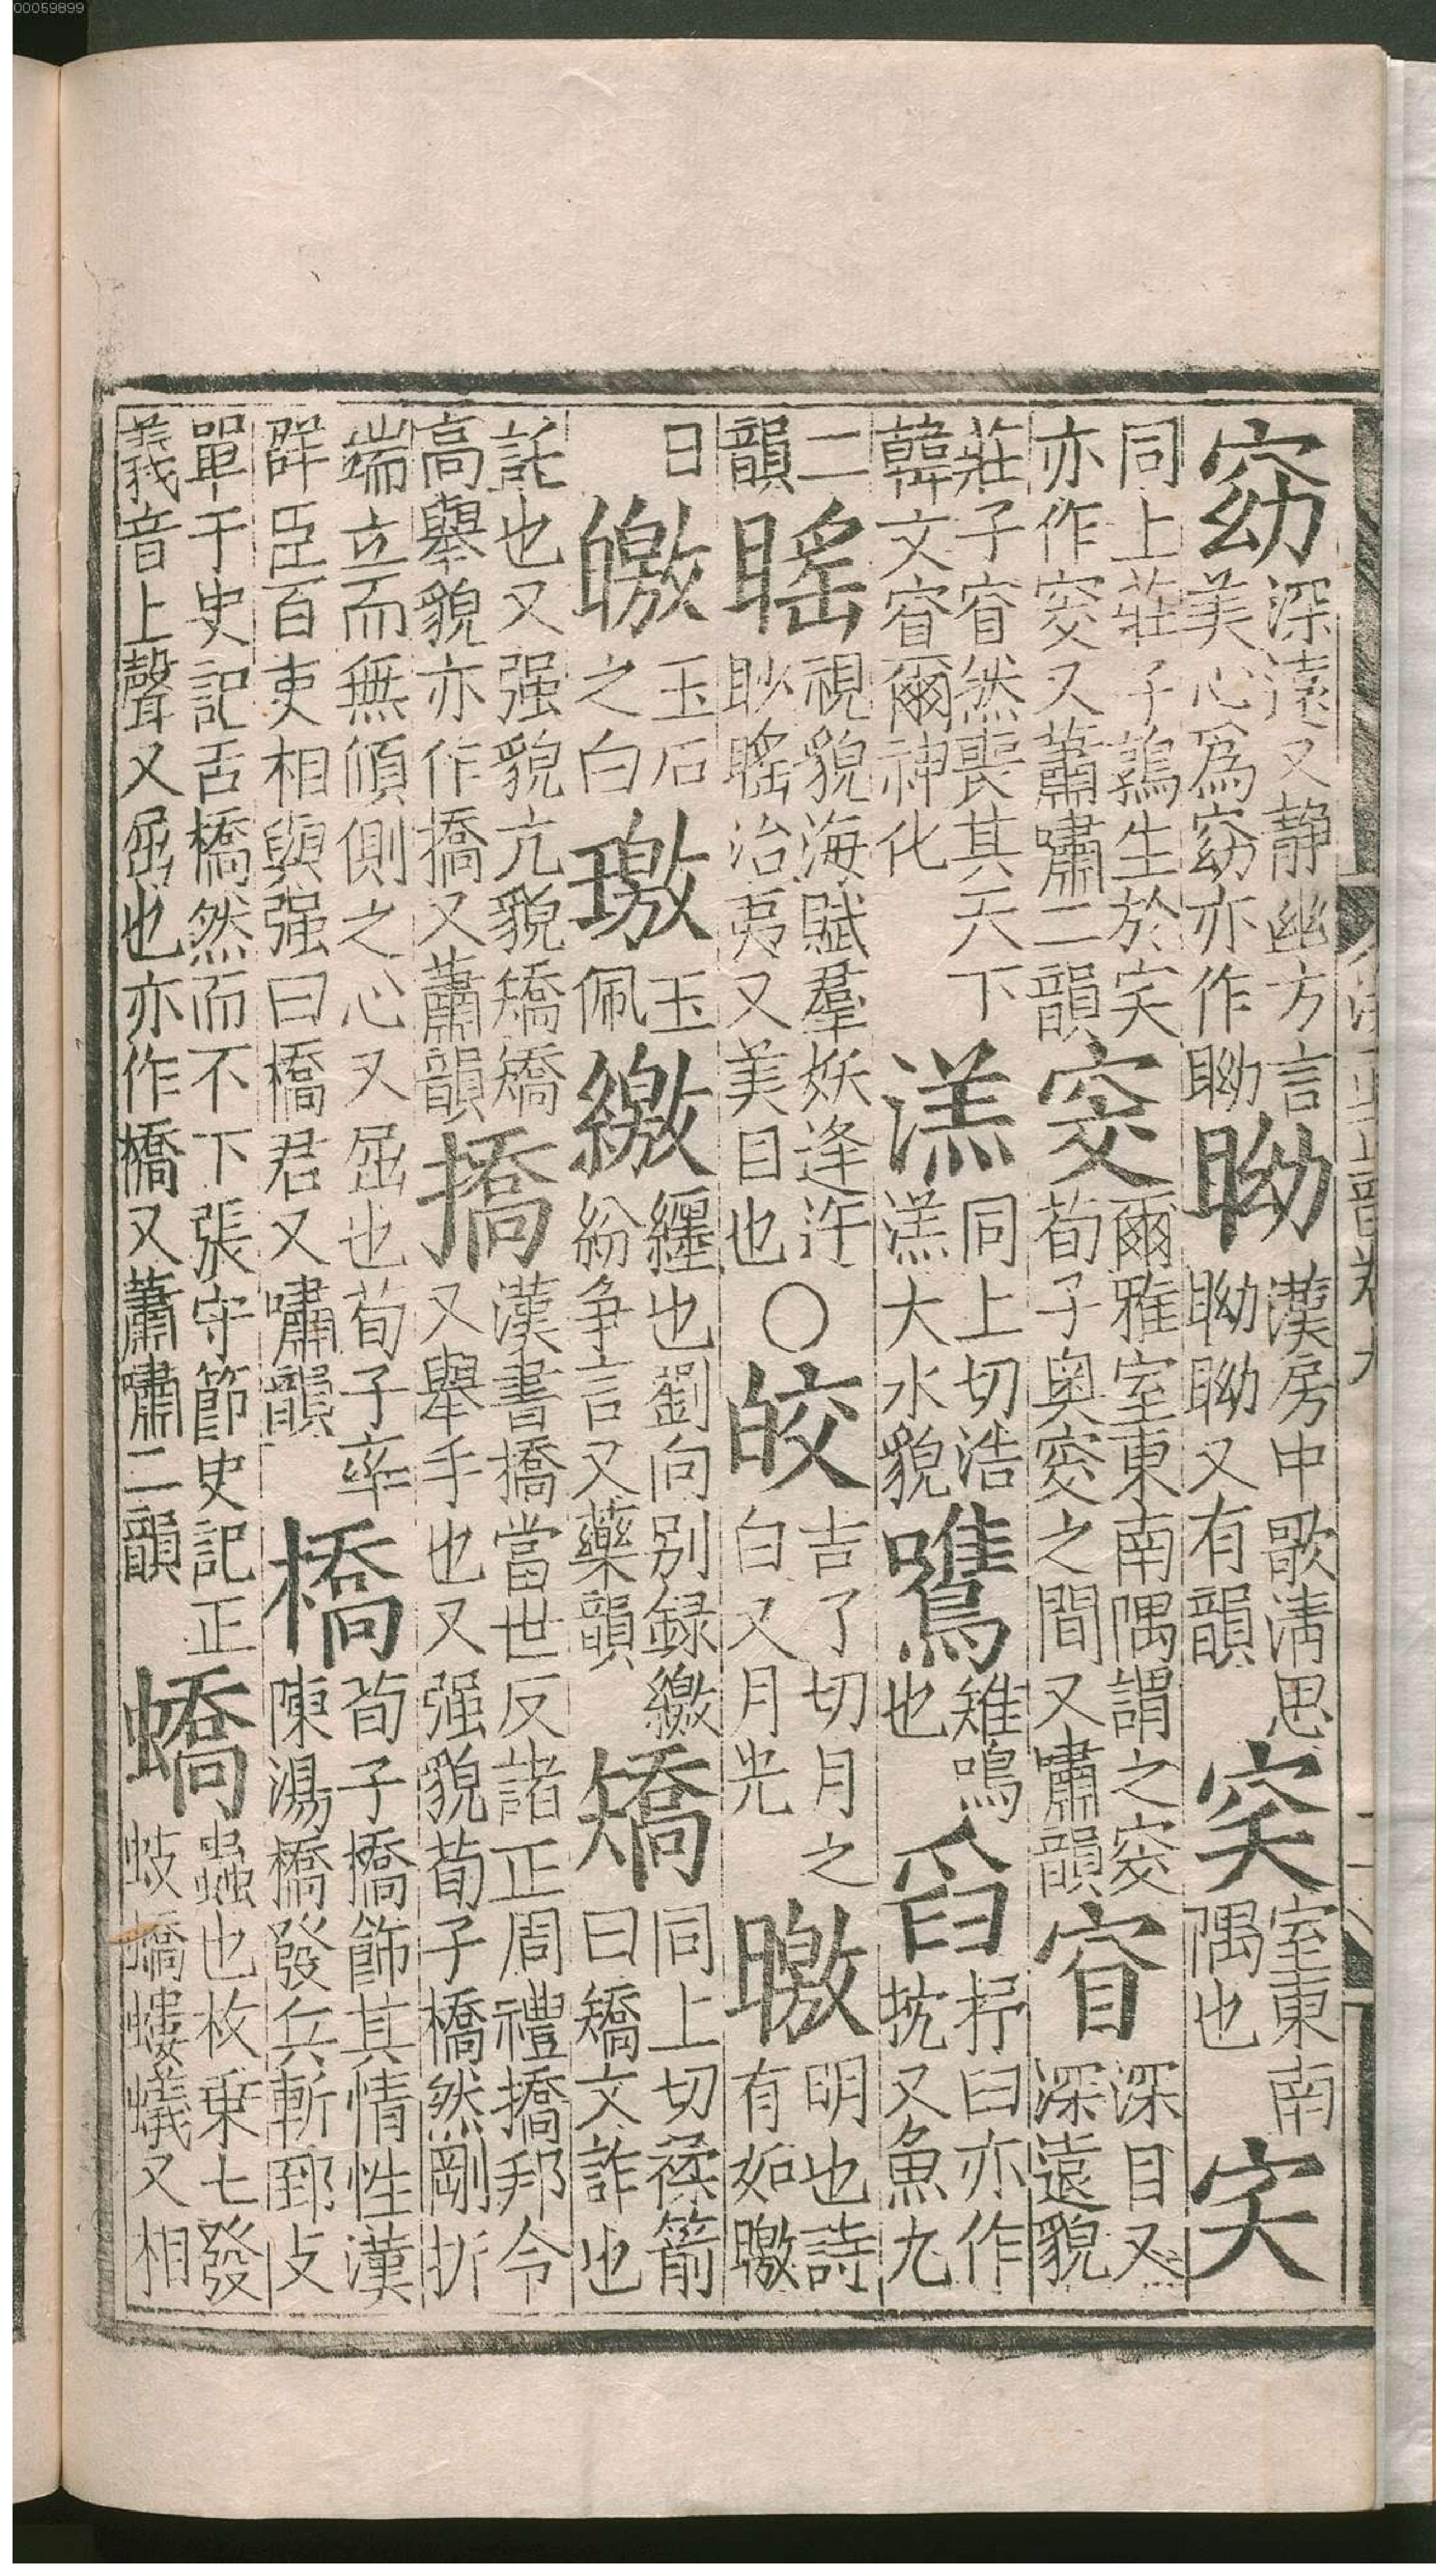 00059899
窈深遠又静幽方言美心爲窈亦作䀎䀎漢房中歌清思䀎䀎又有韻窔室東南隅也宎
同上莊子鶉生於宎亦作窔又蕭嘯二韻窔爾雅室東南隅謂之窔荀子奥窔之間又嘯韻窅深目又深遠貌
莊子窅然喪其天下韓文窅爾神化渞同上切浩渞大水貌鷕雉鳴也舀抒臼亦作抗又魚九
二韻䁘視貌海賦羣妖逢迕眇䁘冶夷又美目也○皎吉了切月之白又月光曒明也詩有如曒
日皦玉石之白璬玉佩繳纒也劉向别録繳紛争言又藥韻矯同上切揉箭曰矯文詐也
託也又强貌亢貌矯矯高舉貌亦作撟又蕭韻撟漢書撟當世反諸正周禮撟邦令又舉手也又强貌荀子橋然剛折
端立而無傾側之心又屈也荀子率群臣百吏相與强曰橋君又嘯韻橋荀子撟飾其情性漢陳湯橋發兵斬郅支
單于史記舌橋然而不下張守節史記正義音上聲又屈也亦作撟又蕭嘯二韻蟜蟲也枚乗七發蚑蟜螻蟻又相